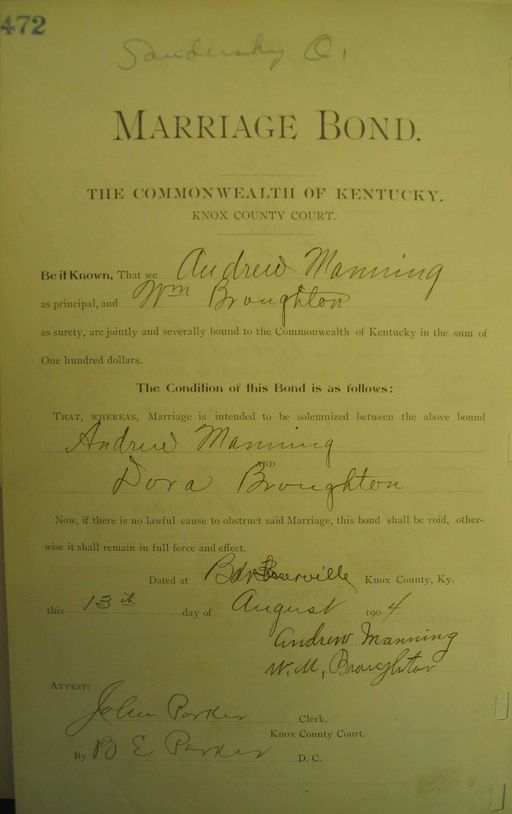 472
Sandersky O.
MARRIAGE BOND.
THE COMMONWEALTH OF KENTUCKY.
KNOX COUNTY COURT.
Be it Known, That we Andrew Manning
as principal, and Wm Broughton
as surety, are jointly and severally bound to the Commonwealth of Kentucky in the sum of
One hundred dollars.
The Condition of this Bond is as follows:
THAT, WHEREAS, Marriage is intended to be solemnized between the above bound
Andrew Manning
AND
Dora Broughton
Now, if there is no lawful cause to obstruct said Marriage, this bond shall be void, other-
wise it shall remain in full force and effect.
Dated at Knox County, Ky.
this 13th day of August 1904
Andrew Manning
W. M. Broughton
ATTEST:
John Parker Clerk.
Knox County Court.
By B E Parker D. C.